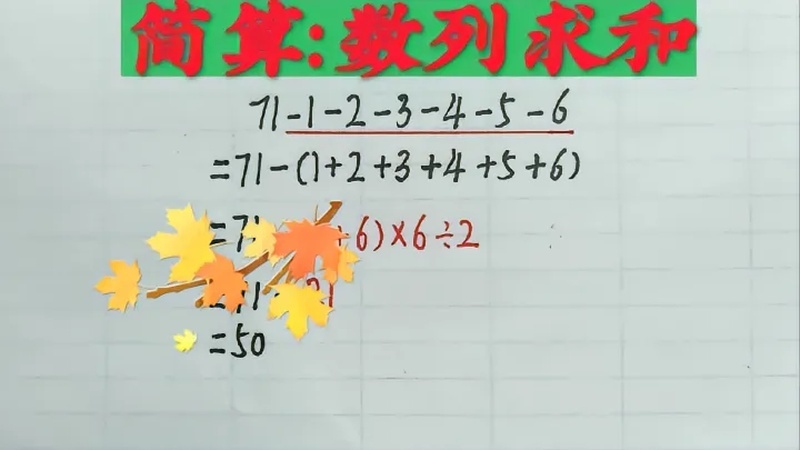 简算:数列求和
71-1-2-3-4-5-6
=71-(1+2+3+4+5+6)
=7 +6)×6÷2
=50